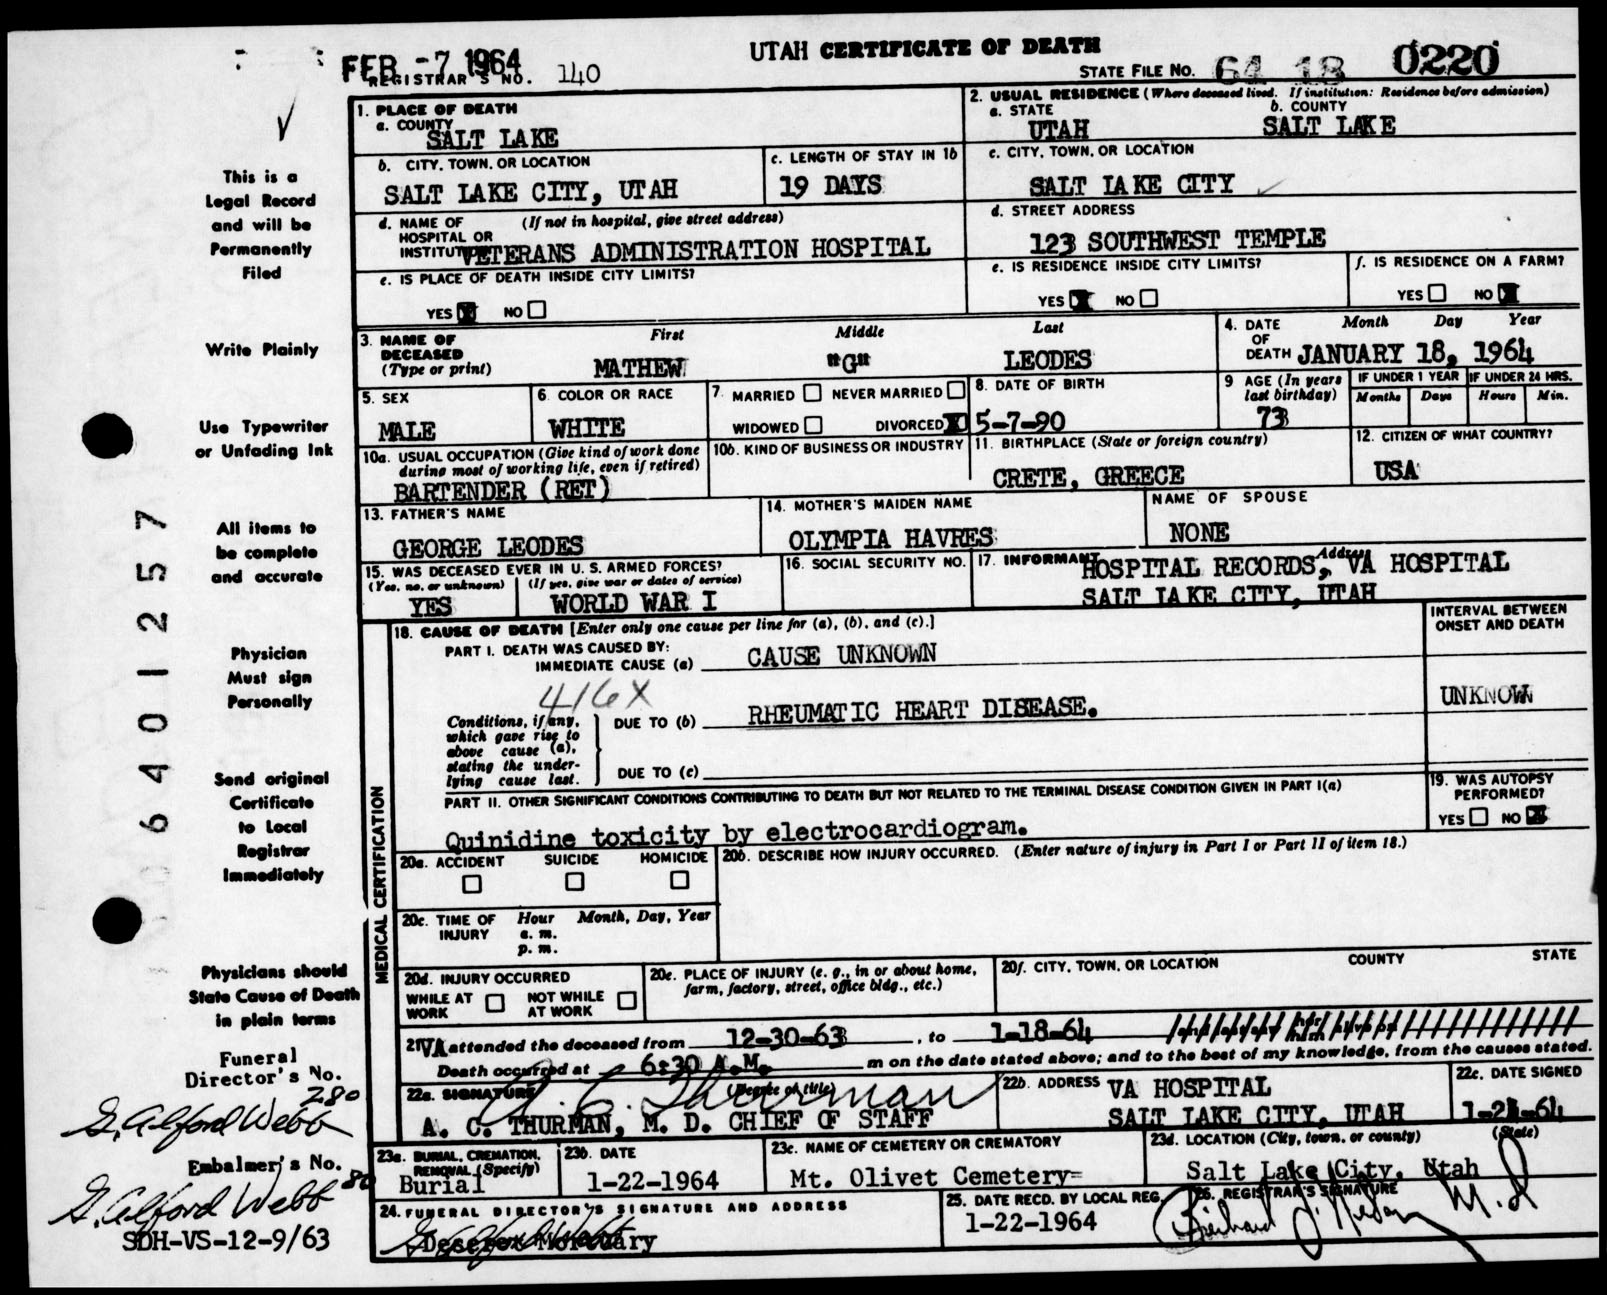 FEB -7 1964
UTAH CERTIFICATE OF DEATH
REGISTRAR'S NO. 140
STATE FILE NO. 64 18 0220
1. PLACE OF DEATH
a. COUNTY
SALT LAKE
2. USUAL RESIDENCE (Where deceased lived. If institution: Residence before admission)
a. STATE b. COUNTY
UTAH SALT LAKE
b. CITY, TOWN, OR LOCATION
SALT LAKE CITY, UTAH
c. LENGTH OF STAY IN 1b
19 DAYS
c. CITY, TOWN, OR LOCATION
SALT LAKE CITY
d. NAME OF (If not in hospital, give street address)
HOSPITAL OR
INSTITUTION VETERANS ADMINISTRATION HOSPITAL
d. STREET ADDRESS
123 SOUTHWEST TEMPLE
e. IS PLACE OF DEATH INSIDE CITY LIMITS?
YES X NO
e. IS RESIDENCE INSIDE CITY LIMITS?
YES X NO
f. IS RESIDENCE ON A FARM?
YES NO X
3. NAME OF DECEASED (Type or print)
First Middle Last
MATHEW "G" LEODES
4. DATE OF DEATH Month Day Year
JANUARY 18, 1964
5. SEX
MALE
6. COLOR OR RACE
WHITE
7. MARRIED NEVER MARRIED
WIDOWED DIVORCED X
8. DATE OF BIRTH
5-7-90
9 AGE (In years last birthday)
73
IF UNDER 1 YEAR IF UNDER 24 HRS.
Months Days Hours Min.
10a. USUAL OCCUPATION (Give kind of work done
during most of working life, even if retired)
BARTENDER (RET)
10b. KIND OF BUSINESS OR INDUSTRY
11. BIRTHPLACE (State or foreign country)
CRETE, GREECE
12. CITIZEN OF WHAT COUNTRY?
USA
13. FATHER'S NAME
GEORGE LEODES
14. MOTHER'S MAIDEN NAME
OLYMPIA HAVRES
NAME OF SPOUSE
NONE
15. WAS DECEASED EVER IN U. S. ARMED FORCES?
(Yes, no, or unknown) (If yes, give war or dates of service)
YES WORLD WAR I
16. SOCIAL SECURITY NO.
17. INFORMANT Address
HOSPITAL RECORDS, VA HOSPITAL
SALT LAKE CITY, UTAH
18. CAUSE OF DEATH [Enter only one cause per line for (a), (b), and (c).]
INTERVAL BETWEEN
ONSET AND DEATH
PART I. DEATH WAS CAUSED BY:
IMMEDIATE CAUSE (a) CAUSE UNKNOWN
416X
Conditions, if any,
which gave rise to
above cause (a),
stating the under-
lying cause last.
DUE TO (b) RHEUMATIC HEART DISEASE.
UNKNOW
DUE TO (c)
PART II. OTHER SIGNIFICANT CONDITIONS CONTRIBUTING TO DEATH BUT NOT RELATED TO THE TERMINAL DISEASE CONDITION GIVEN IN PART I(a)
Quinidine toxicity by electrocardiogram.
19. WAS AUTOPSY
PERFORMED?
YES NO X
20a. ACCIDENT SUICIDE HOMICIDE
20b. DESCRIBE HOW INJURY OCCURRED. (Enter nature of injury in Part I or Part II of item 18.)
20c. TIME OF INJURY Hour Month, Day, Year
a. m.
p. m.
20d. INJURY OCCURRED
WHILE AT WORK NOT WHILE AT WORK
20e. PLACE OF INJURY (e. g., in or about home,
farm, factory, street, office bldg., etc.)
20f. CITY, TOWN, OR LOCATION COUNTY STATE
21 VA attended the deceased from 12-30-63, to 1-18-64 and last saw her him alive on
Death occurred at 6:30 A.M. m on the date stated above; and to the best of my knowledge, from the causes stated.
22a. SIGNATURE (Degree or title)
A. C. Thurman
A. C. THURMAN, M. D. CHIEF OF STAFF
22b. ADDRESS VA HOSPITAL
SALT LAKE CITY, UTAH
22c. DATE SIGNED
1-21-64
23a. BURIAL, CREMATION,
REMOVAL (Specify)
Burial
23b. DATE
1-22-1964
23c. NAME OF CEMETERY OR CREMATORY
Mt. Olivet Cemetery=
23d. LOCATION (City, town, or county) (State)
Salt Lake City, Utah
24. FUNERAL DIRECTOR'S SIGNATURE AND ADDRESS
G. Alford Webb
Deseret Mortuary
25. DATE RECD. BY LOCAL REG.
1-22-1964
26. REGISTRAR'S SIGNATURE
M.D
MEDICAL CERTIFICATION
This is a
Legal Record
and will be
Permanently
Filed
Write Plainly
Use Typewriter
or Unfading Ink
All items to
be complete
and accurate
Physician
Must sign
Personally
Send original
Certificate
to Local
Registrar
Immediately
Physicians should
State Cause of Death
in plain terms
Funeral
Director's No.
280
G. Alford Webb
Embalmer's No. 80
G. Alford Webb
SDH-VS-12-9/63
06401257